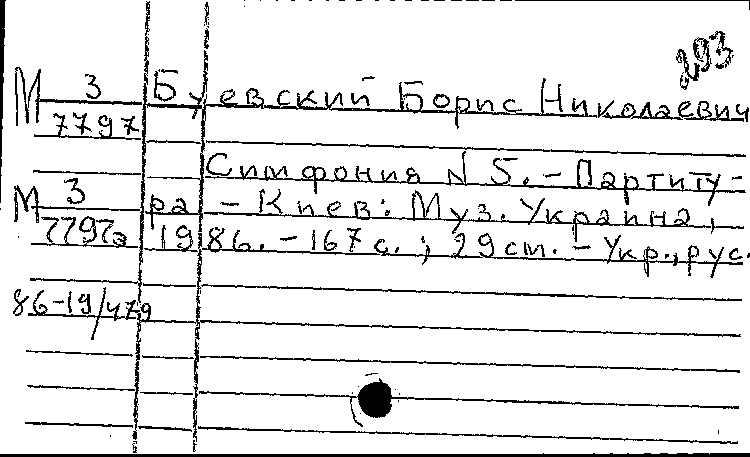 293
М 3 Буевский Борис Николаевич
7797
Симфония N 5. - Партиту-
М 3 ра - Киев: Муз. Украина,
7797а 1986. - 167 с. ; 29 см. - Укр., рус.
86-19/479